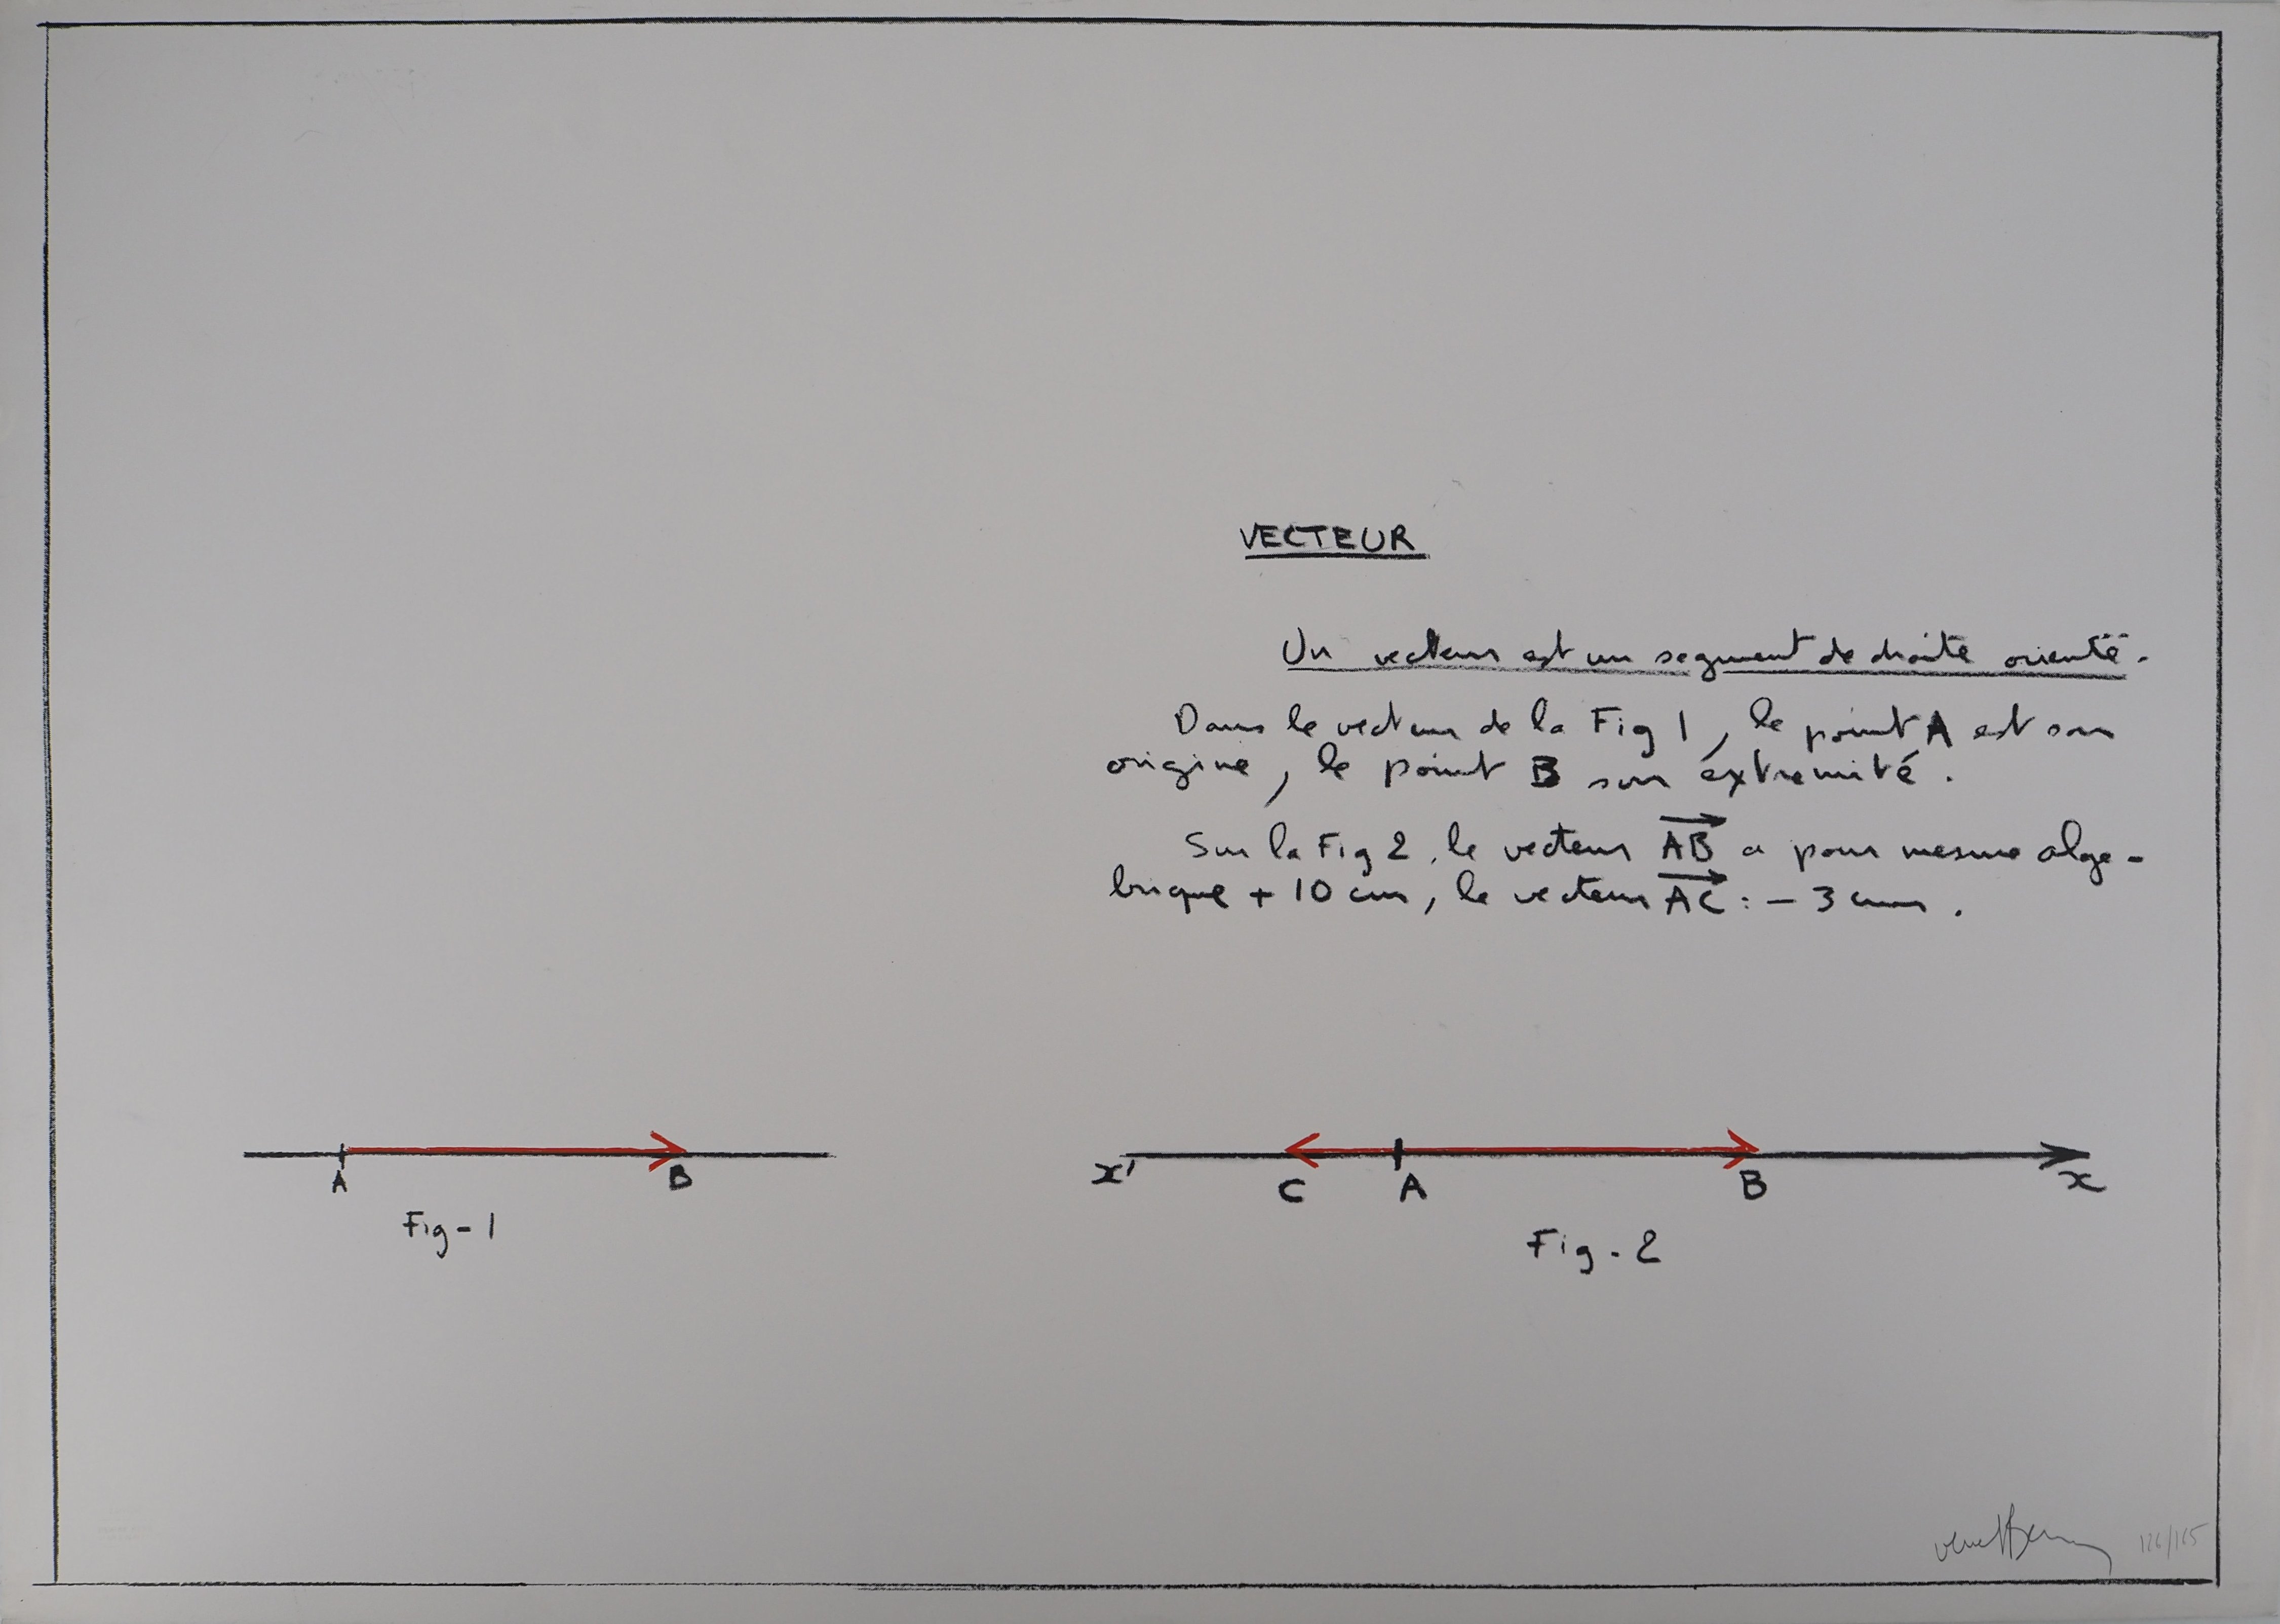 VECTEUR
Un vecteur est un segment de droite orienté.
Dans le vecteur de la Fig 1, le point A est son
origine, le point B son éxtremité.
Sur la Fig 2, le vecteur AB a pour mesure alge-
brique + 10 cm, le vecteur AC : - 3 cm.
A B
Fig - 1
x' C A B x
Fig . 2
126/165